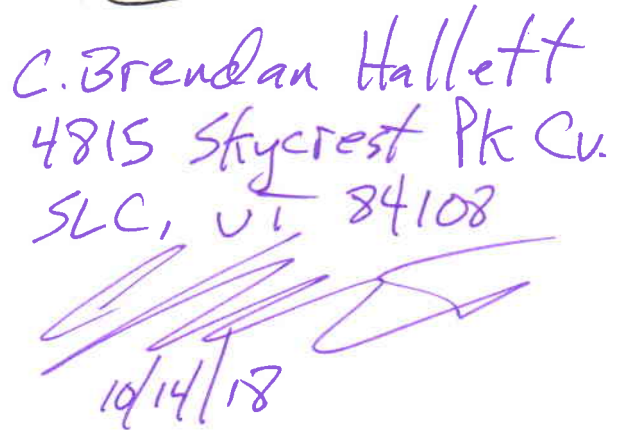 C. Brendan Hallett
4815 Skycrest Pk Cv.
SLC, UT 84108
10/14/18